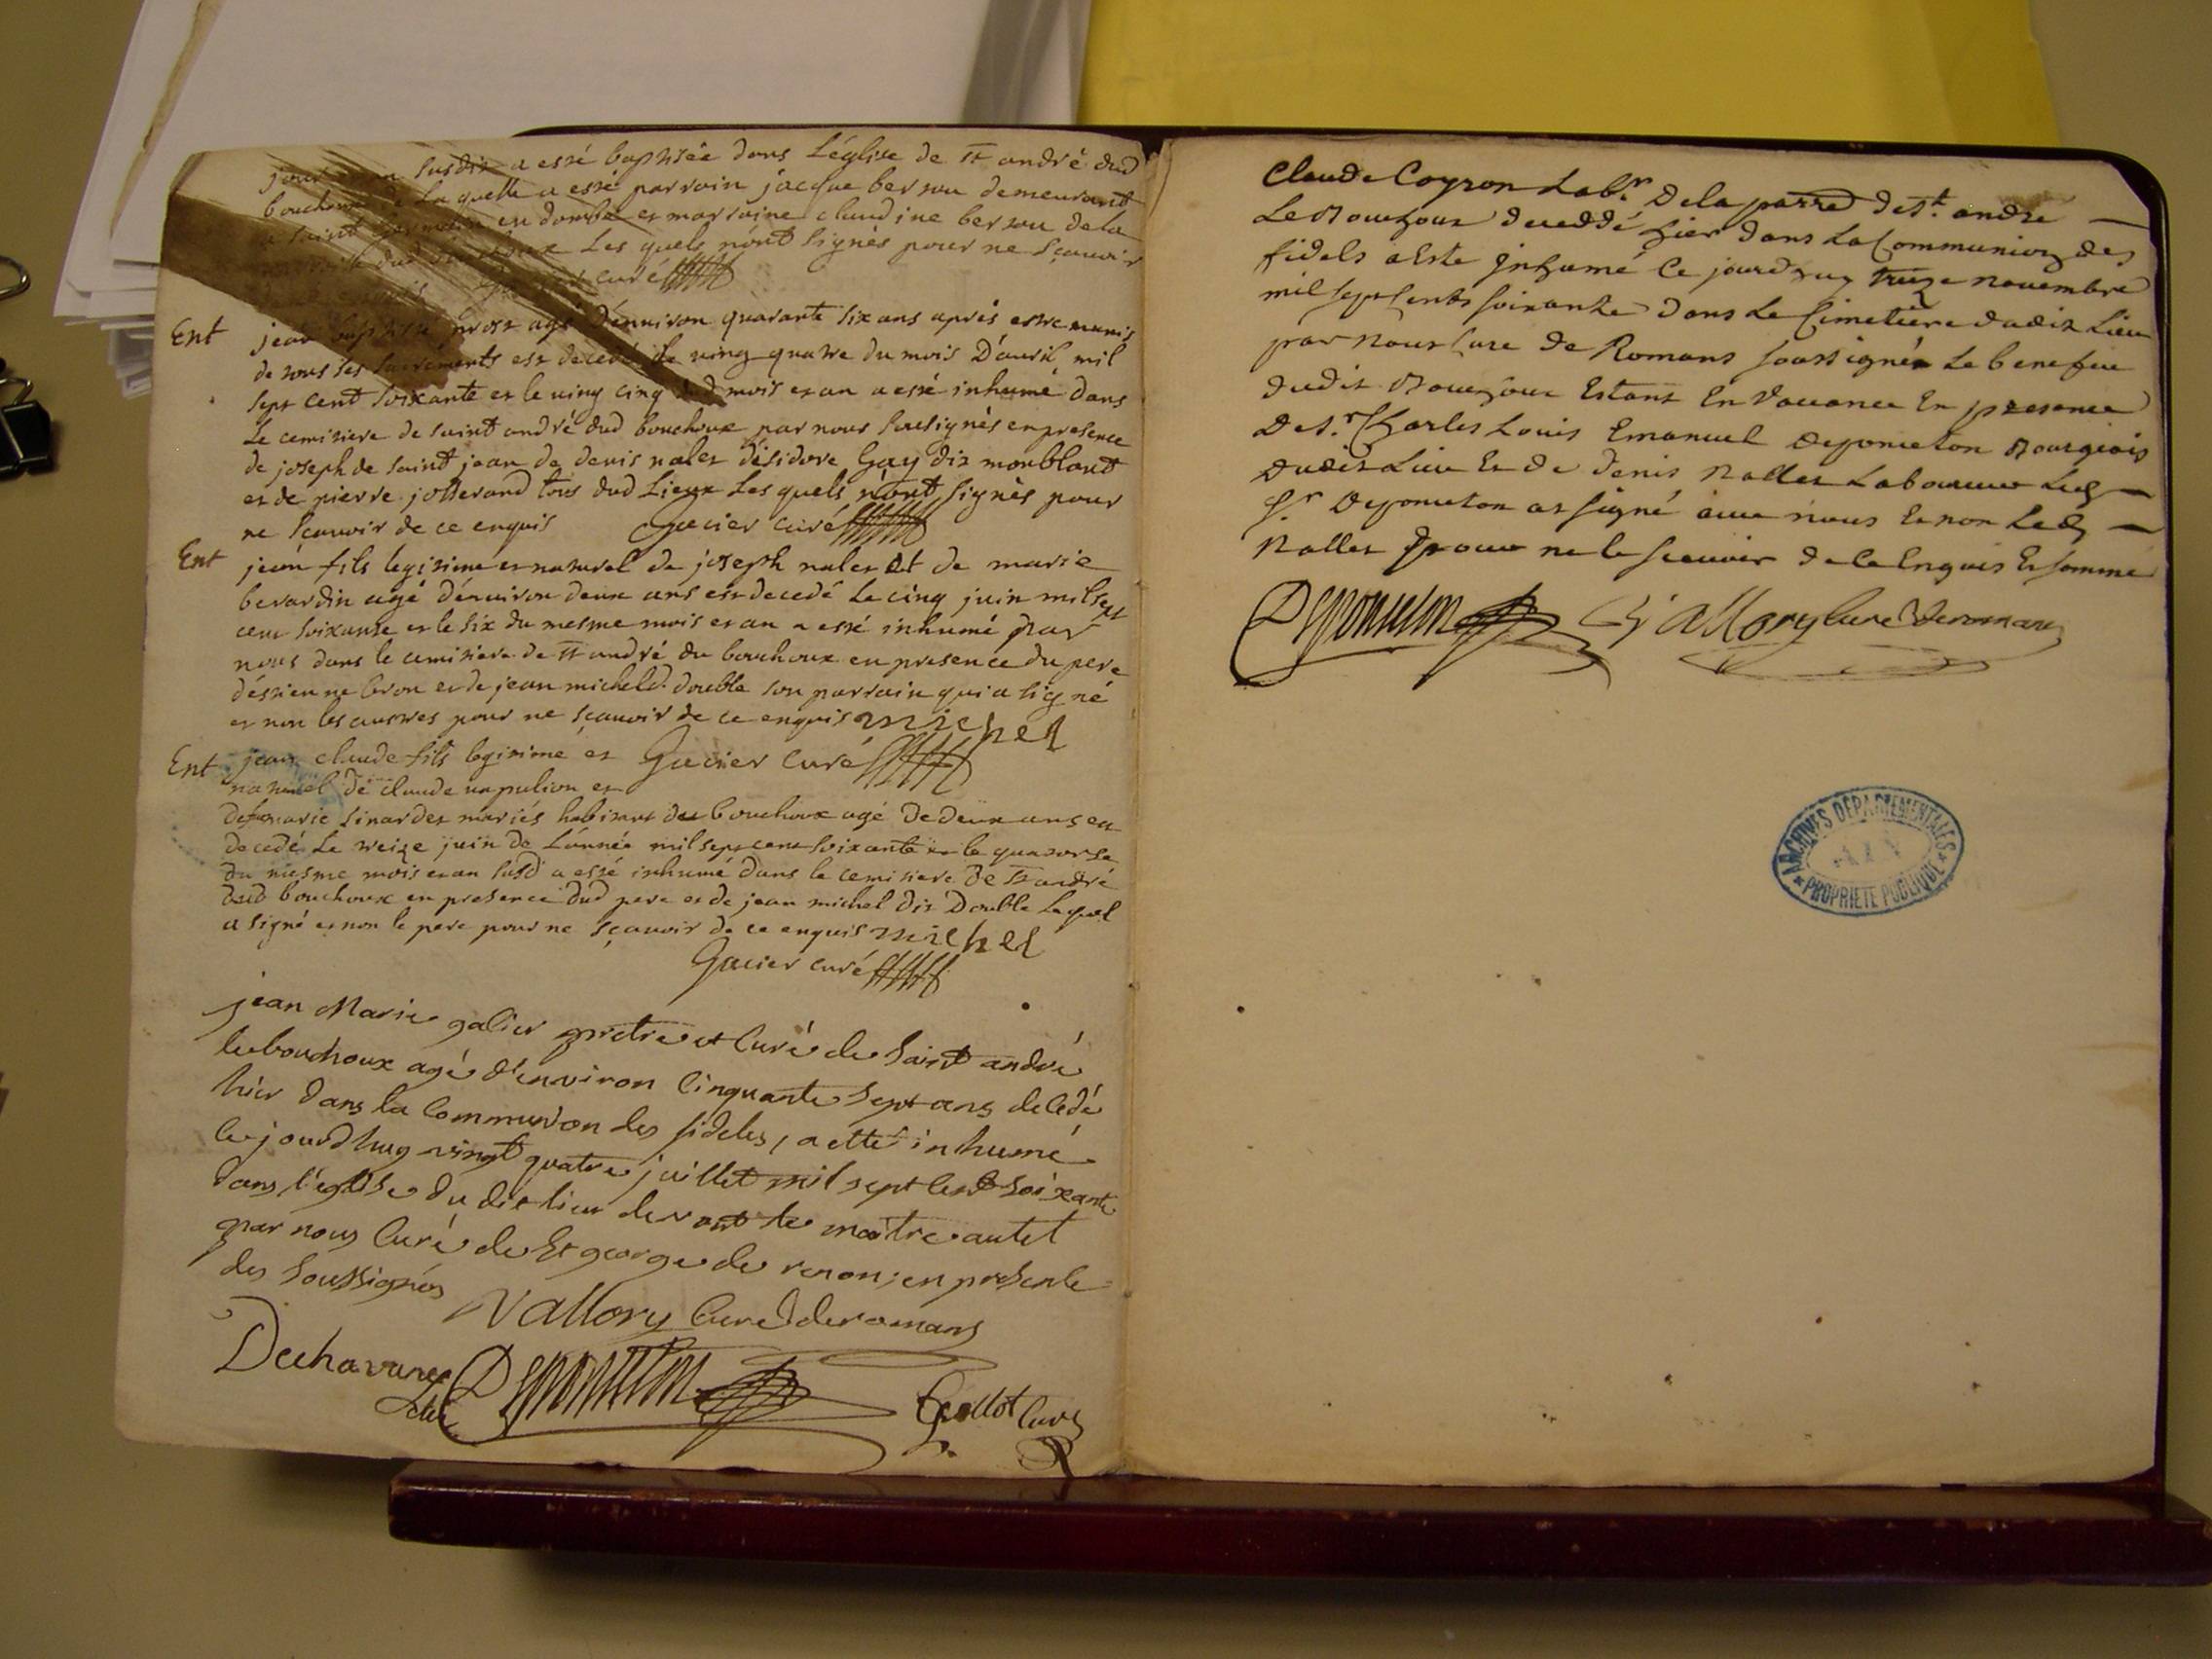 jour et an susdit a esté baptisée dans L'église de st andré dud
bouchoux de Laquelle a esté parrain jacque bersou demeurant
a saint Germain en dombe et marraine claudine bersou de la
dud bouchoux Les quels n'ont signés pour ne sçauoir
curé
Ent
jean baptiste prost agé D'enuiron quarante six ans aprés estre munis
de tous ses sacrements est decedé le ving quatre du mois D'auril mil
sept cent soixante et le ving cinq dud mois et an a esté inhumé dans
Le cemitiere de saint andré dud bouchoux par nous sousignés en presence
de joseph de saint jean de denis nalet d'isidore Gay dit monblant
et de pierre josserand tous dud Lieux Lesquels n'ont signés pour
ne sçauoir de ce enquis Gacier curé
Ent
jean fils legitime et naturel de joseph nalet et de marie
berardin agé D'enuiron deux ans est decedé Le cinq juin mil sept
cent soixante et le six du mesme mois et an a esté inhumé par
nous dans le cemitiere de st andré du bouchoux en presence du pere
d'estienne et de jean michel d. double son parrain qui a signé
et non les austres pour ne sçauoir de ce enquis michel
Gacier curé
Ent
jean claude fils legitime et
naturel de claude et
marie mariés habitant du bouchoux agé De deux ans est
decedé Le treize juin de L'année mil sept cent soixante et le quatorse
du mesme mois et an susd a esté inhumé dans le cemitiere De st andré
dud bouchoux en presence dud pere et de jean michel dit Double Lequel
a signé et non le pere pour ne sçauoir de ce enquis michel
Gacier curé
jean Marie galier pretre et Curé de Saint andré
le bouchoux agé d'environ Cinquante Sept ans decedé
hier dans la Communion des fideles, a etté inhumé
Ce jourd'huy vingt quatre juillet mil sept Cent Soixante
dans l'église du dit lieu devant le maitre autel
par nous Curé de St george de renon; en présence
des Soussignés
Vallory Curé de romans
Dechavanes Deponcton Curé
Claude Coyron Labr. De la parre de St. andre
Le Bouchoux deceddé hier dans La Communion des
fidels a Este Inhumé Ce jourdhuy treize nouembre
mil sept Cents soixante Dans Le Cimetiere dudit Lieu
par nous Cure de Romans soussigné Le benefice
dudit Bouchoux Estant En Vacance En presence
De Sr. Charles Louis Emanuel Deponcton Bourgeois
dudit Lieu Et de Denis Nallet Laboureur Led
Sr Deponcton at signé auec nous Et non Led
Nallet pour ne le scauoir de Ce Enquis Et sommé
Deponcton Vallory Cure de romans
ARCHIVES DÉPARTEMENTALES
AIN
PROPRIÉTÉ PUBLIQUE